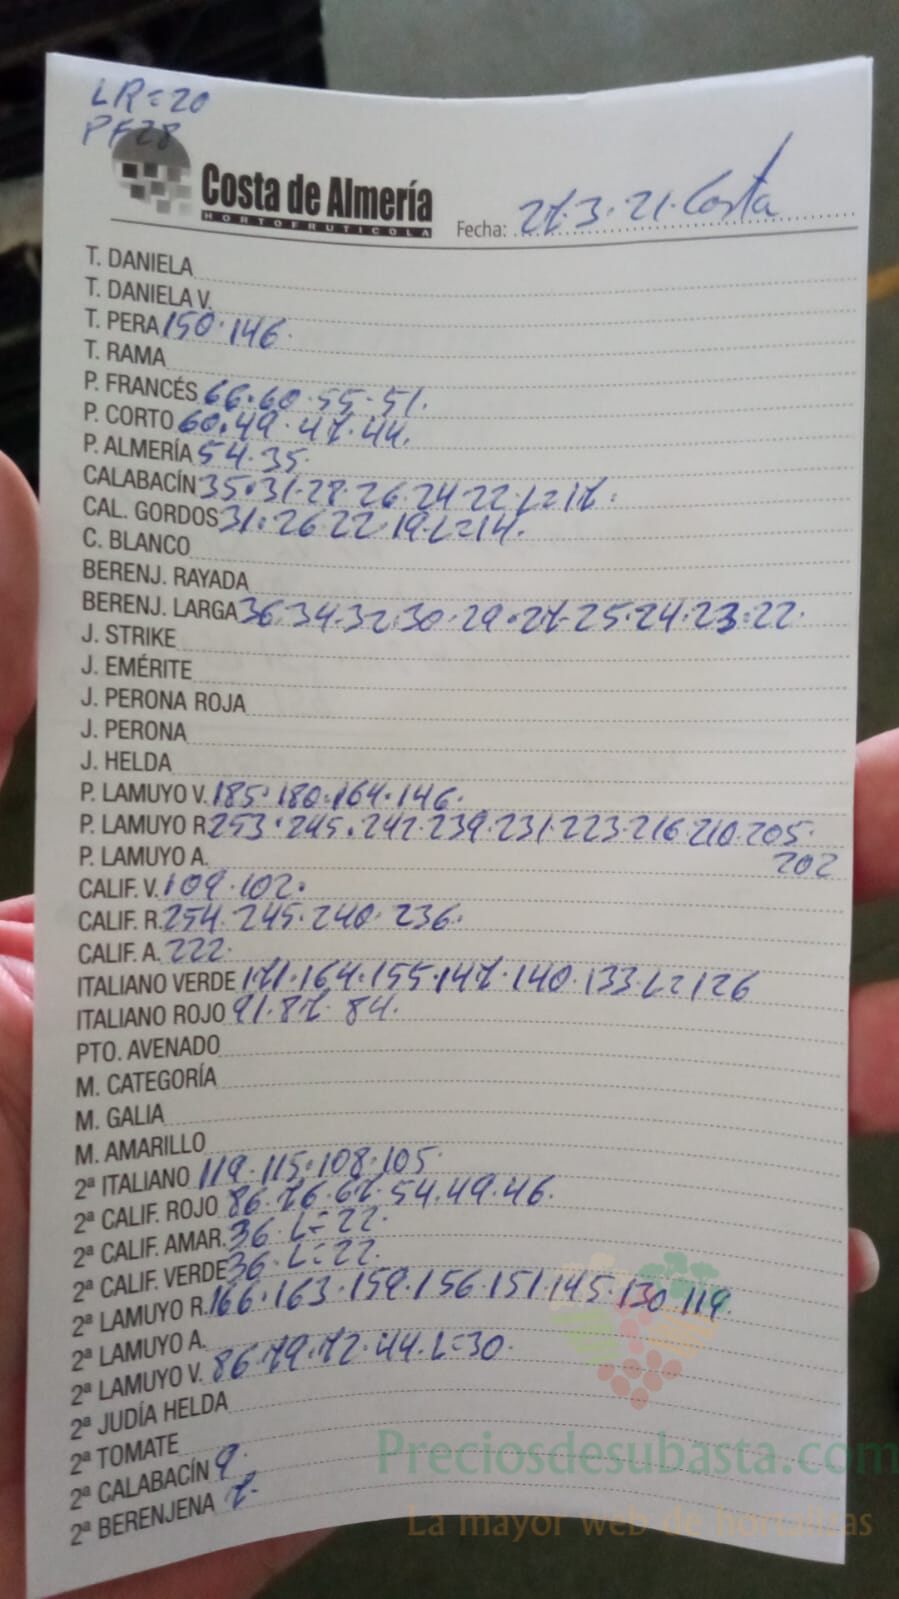 LR=20
PF28
Costa de Almería
HORTOFRUTICOLA
Fecha: 27.3.21. Costa
T. DANIELA
T. DANIELA V.
T. PERA 150.146.
T. RAMA
P. FRANCÉS 66.60.55.51.
P. CORTO 60.49.47.44.
P. ALMERÍA 54.35.
CALABACÍN 35.31.28.26.24.22.L=17.
CAL. GORDOS 31.26.22.19.L=14.
C. BLANCO
BERENJ. RAYADA
BERENJ. LARGA 36.34.32.30.29.27.25.24.23.22.
J. STRIKE
J. EMÉRITE
J. PERONA ROJA
J. PERONA
J. HELDA
P. LAMUYO V. 185.180.164.146.
P. LAMUYO R 253.245.242.239.231.223.216.210.205.
P. LAMUYO A. 202
CALIF. V. 109.102.
CALIF. R. 254.245.240.236.
CALIF. A. 222.
ITALIANO VERDE 171.164.155.147.140.133.L=126
ITALIANO ROJO 91.87.84.
PTO. AVENADO
M. CATEGORÍA
M. GALIA
M. AMARILLO
2ª ITALIANO 119.115.108.105.
2ª CALIF. ROJO 86.76.67.54.49.46.
2ª CALIF. AMAR. 36.L=22.
2ª CALIF. VERDE 36.L=22.
2ª LAMUYO R. 166.163.159.156.151.145.130.119.
2ª LAMUYO A.
2ª LAMUYO V. 86.79.72.44.L=30.
2ª JUDÍA HELDA
2ª TOMATE
2ª CALABACÍN 9.
2ª BERENJENA 7.
Preciosdesubasta.com
La mayor web de hortalizas